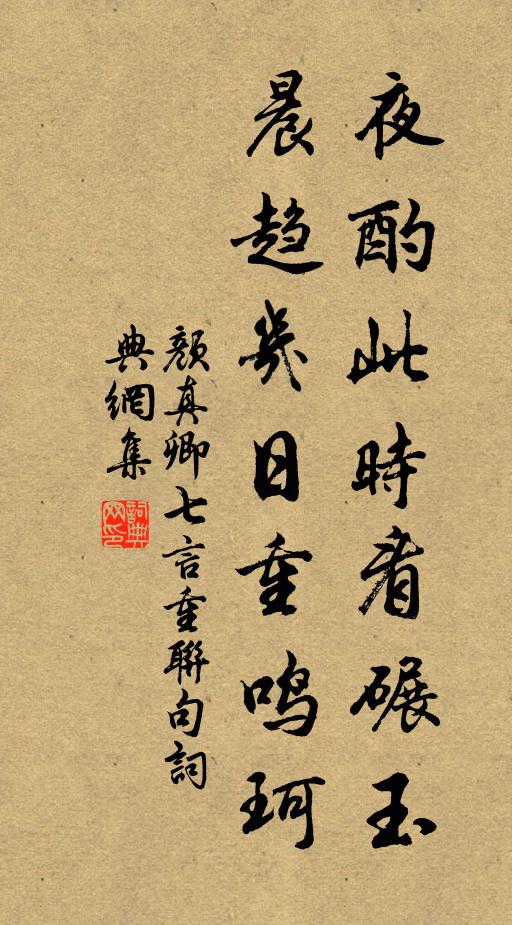 夜酌此時看碾玉
晨趨幾日重鳴珂
顏真卿七言重聯句詞
典網集
詞典
网印